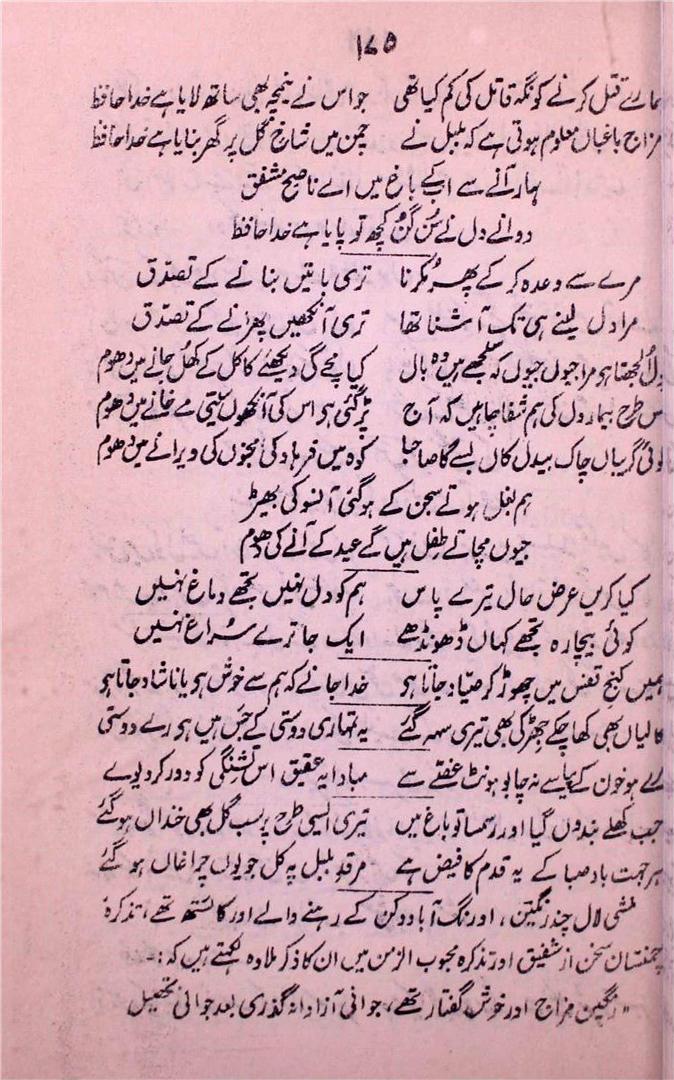 ۱۷۵
ہمارے قتل کرنے کو نگہ قاتل کی کم کیا تھی جو اس نے نیمچہ بھی ساتھ لایا ہے خدا حافظ
مزاج باغباں معلوم ہوتی ہے کہ بلبل نے چمن میں شاخ گل پر گھر بنایا ہے خدا حافظ
بہار آنے سے اب کے باغ میں اے ناصح مشفق
دوانے دل نے سن گن کچھ تو پایا ہے خدا حافظ
مرے سے وعدہ کر کے پھر مکرنا تری باتیں بنانے کے تصدق
مرا دل لینے ہی تک آشنا تھا تری آنکھیں پھرانے کے تصدق
دل الجھتا ہو مرا جیوں جیوں کہ سلجھے ہیں وہ بال کیا مچے گی دیکھئے کاکل کے کھل جانے میں دھوم
کس طرح بیمار دل کی ہم شفا چاہیں کہ آج پڑ گئی ہو اس کی آنکھوں سیتی مے خانے میں دھوم
کوئی گریباں چاک بیدل کاں بسے گا صاحبا کوہ میں فرہاد کی مجنوں کی ویرانے میں دھوم
ہم بغل ہوتے سجن کے ہو گئی آنسو کی بھیڑ
جیوں مچاتے طفل ہیں گے عید کے آنے کی دھوم
کیا کریں عرض حال تیرے پاس ہم کو دل نہیں تجھے دماغ نہیں
کوئی بیچارہ تجھے کہاں ڈھونڈھے ایک جا ترے سراغ نہیں
ہمیں کنج قفس میں چھوڑ کر صیاد جاتا ہو خدا جانے کہ ہم سے خوش ہو یا ناشاد جاتا ہو
گالیاں بھی کھا چکے جھڑکی بھی تیری سہہ گئے یہ تمہاری دوستی کے جس میں ہو رے دوستی
لہو خون کے پیاسے نہ چابو ہونٹ غصے سے مبادا یہ عقیق اس تشنگی کو دور کر دیوے
جب کھلے بندوں گیا اور رسمسا تو باغ میں تیری ایسی طرح پر سب گل بھی خنداں ہو گئے
ہر جہت باد صبا کے یہ قدم کا فیض ہے مرقد بلبل پہ گل جو یوں چراغاں ہو گئے
منشی لال چند رنگین، اورنگ آباد دکن کے رہنے والے اور کائستھ تھے، تذکرہ
چمنستان سخن از شفیق اور تذکرہ محبوب الزمن میں ان کا ذکر ملا وہ لکھتے ہیں کہ :۔
" رنگین مزاج اور خوش گفتار تھے، جوانی آزادانہ گذری بعد جوانی تحصیل